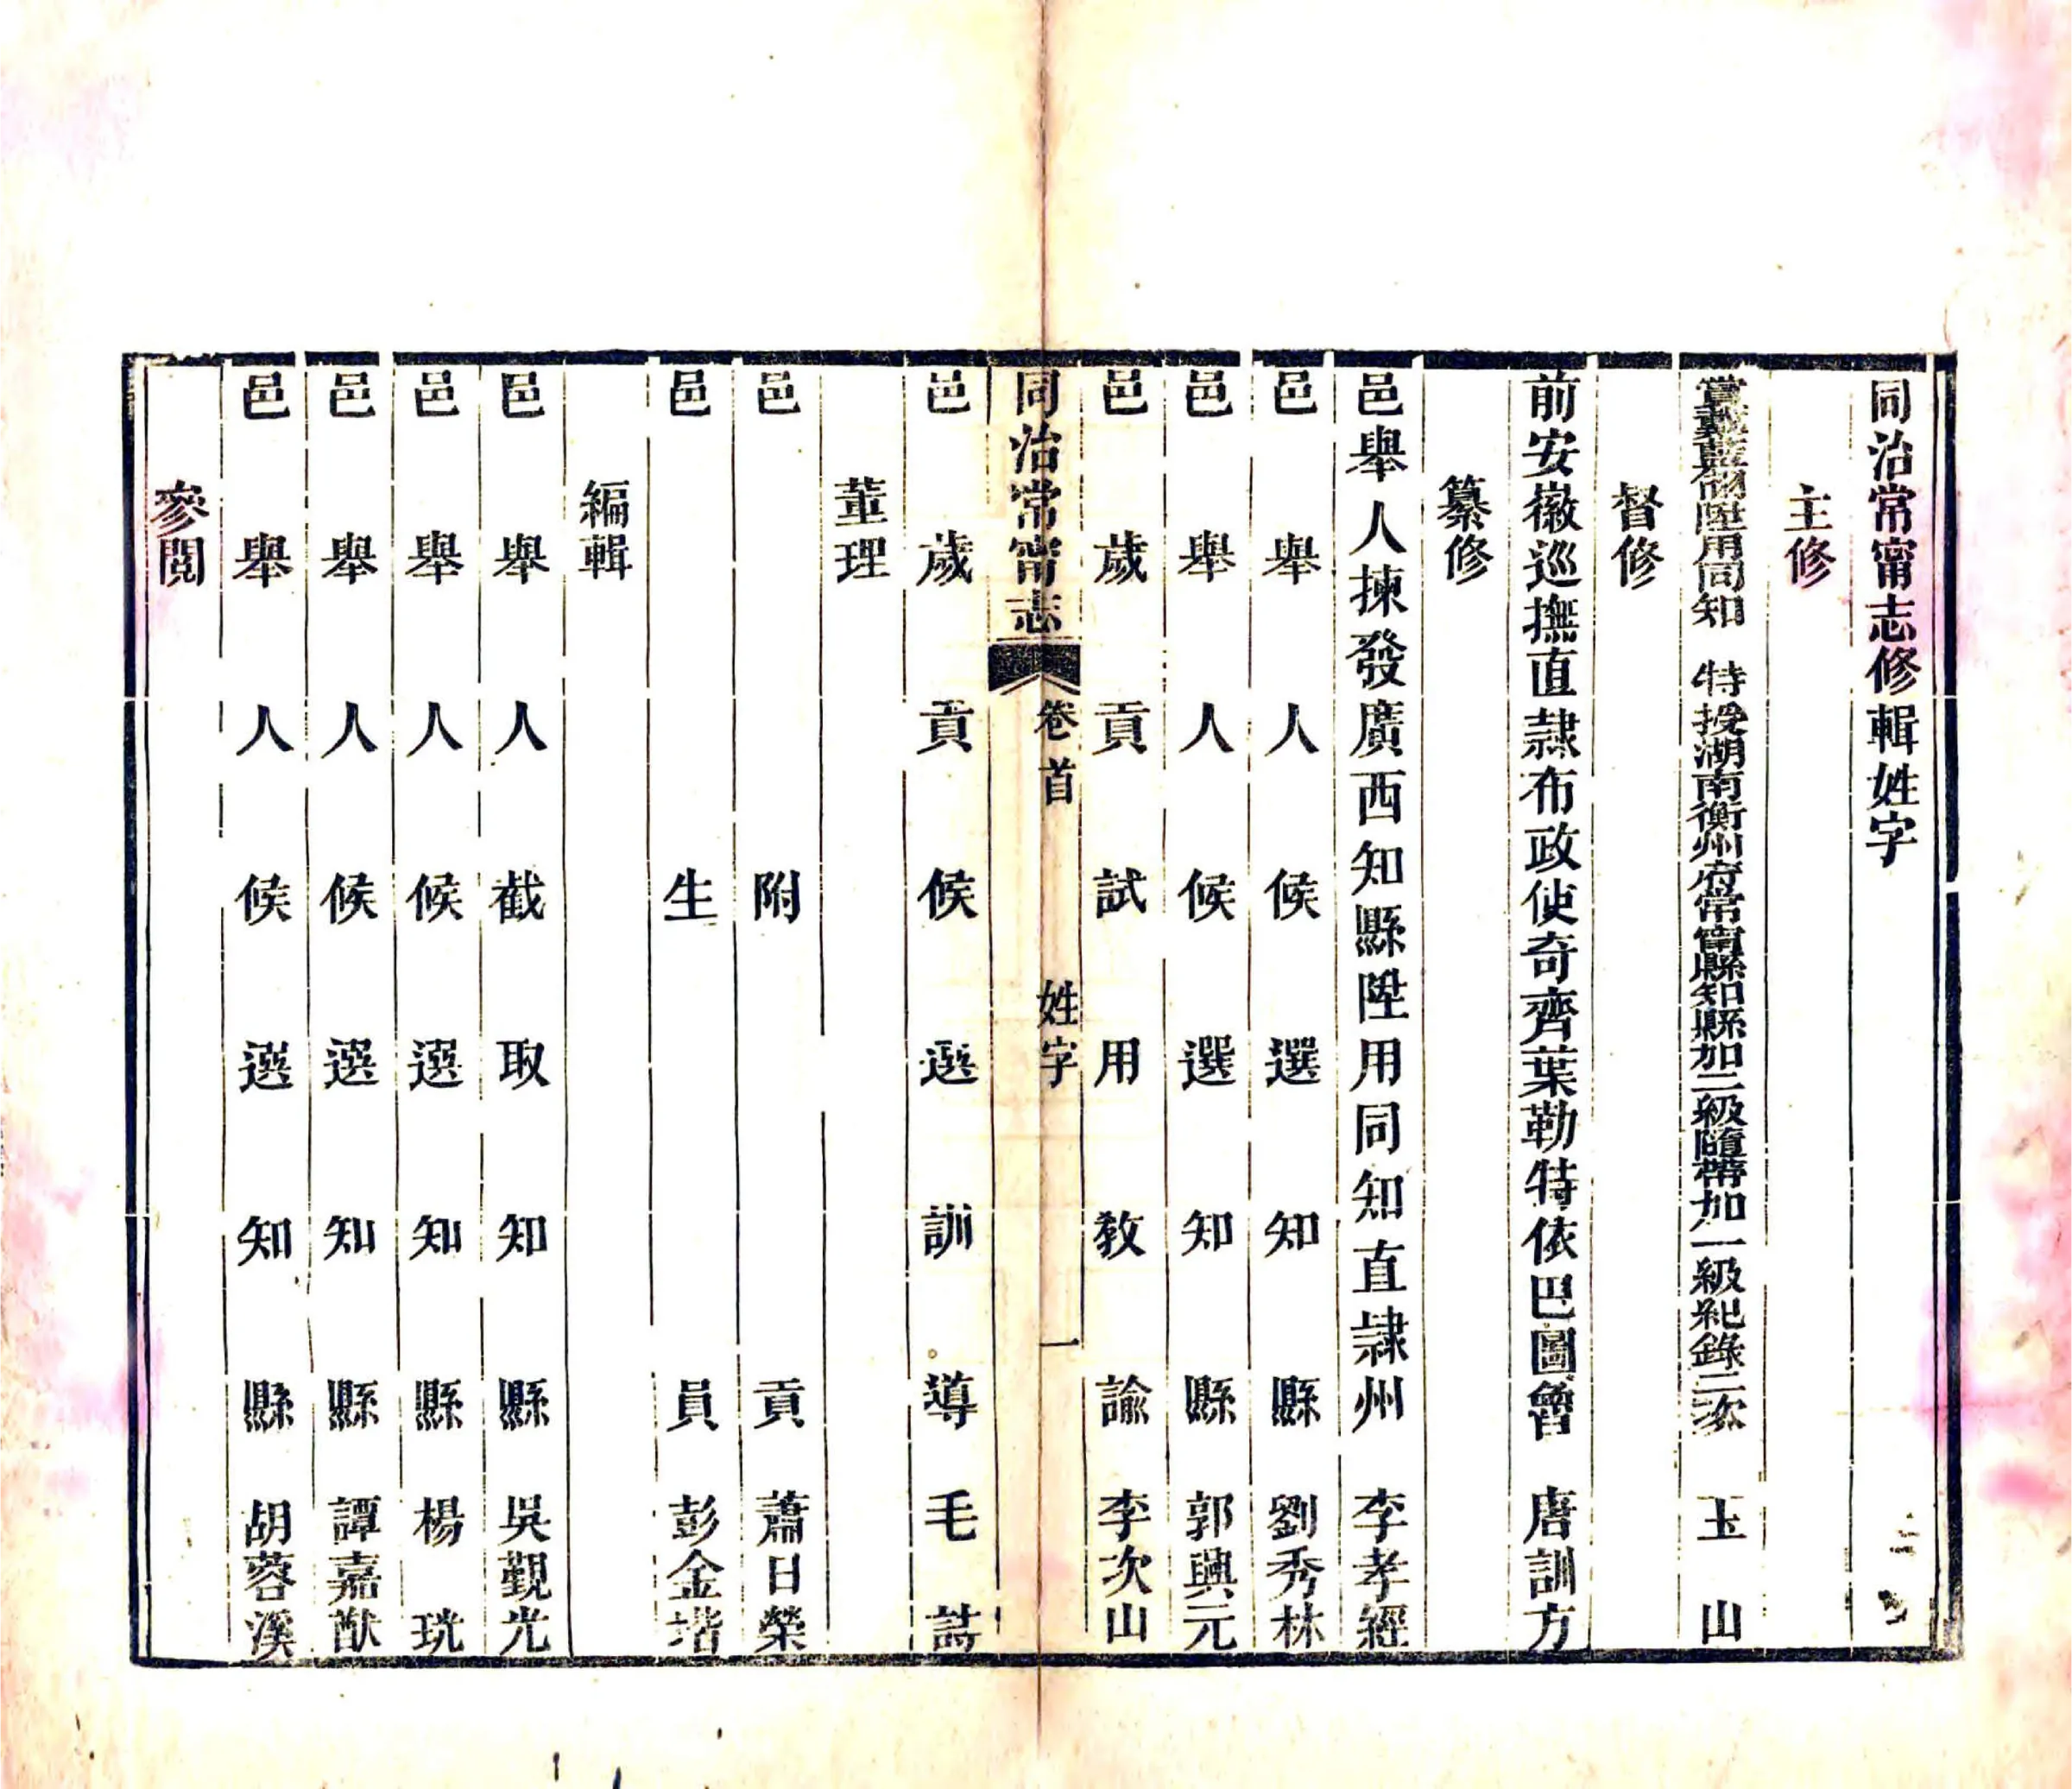 同治常甯志修輯姓字
主修
賞戴藍翎陞用同知 特授湖南衡州府常甯縣知縣加二級隨帶加一級紀錄二次 玉 山
督修
前安徽巡撫直隸布政使奇齊葉勒特依巴圖魯 唐訓方
纂修
邑舉人揀發廣西知縣陞用同知直隸州 李孝經
邑舉人候選知縣 劉秀林
邑舉人候選知縣 郭興元
邑歲貢試用教諭 李次山
同治常甯志 卷首 姓字 一
邑歲貢候選訓導 毛 誥
董理
邑附貢 蕭日榮
邑生員 彭金堦
編輯
邑舉人截取知縣 吳覲光
邑舉人候選知縣 楊 珖
邑舉人候選知縣 譚嘉猷
邑舉人候選知縣 胡蓉溪
參閱